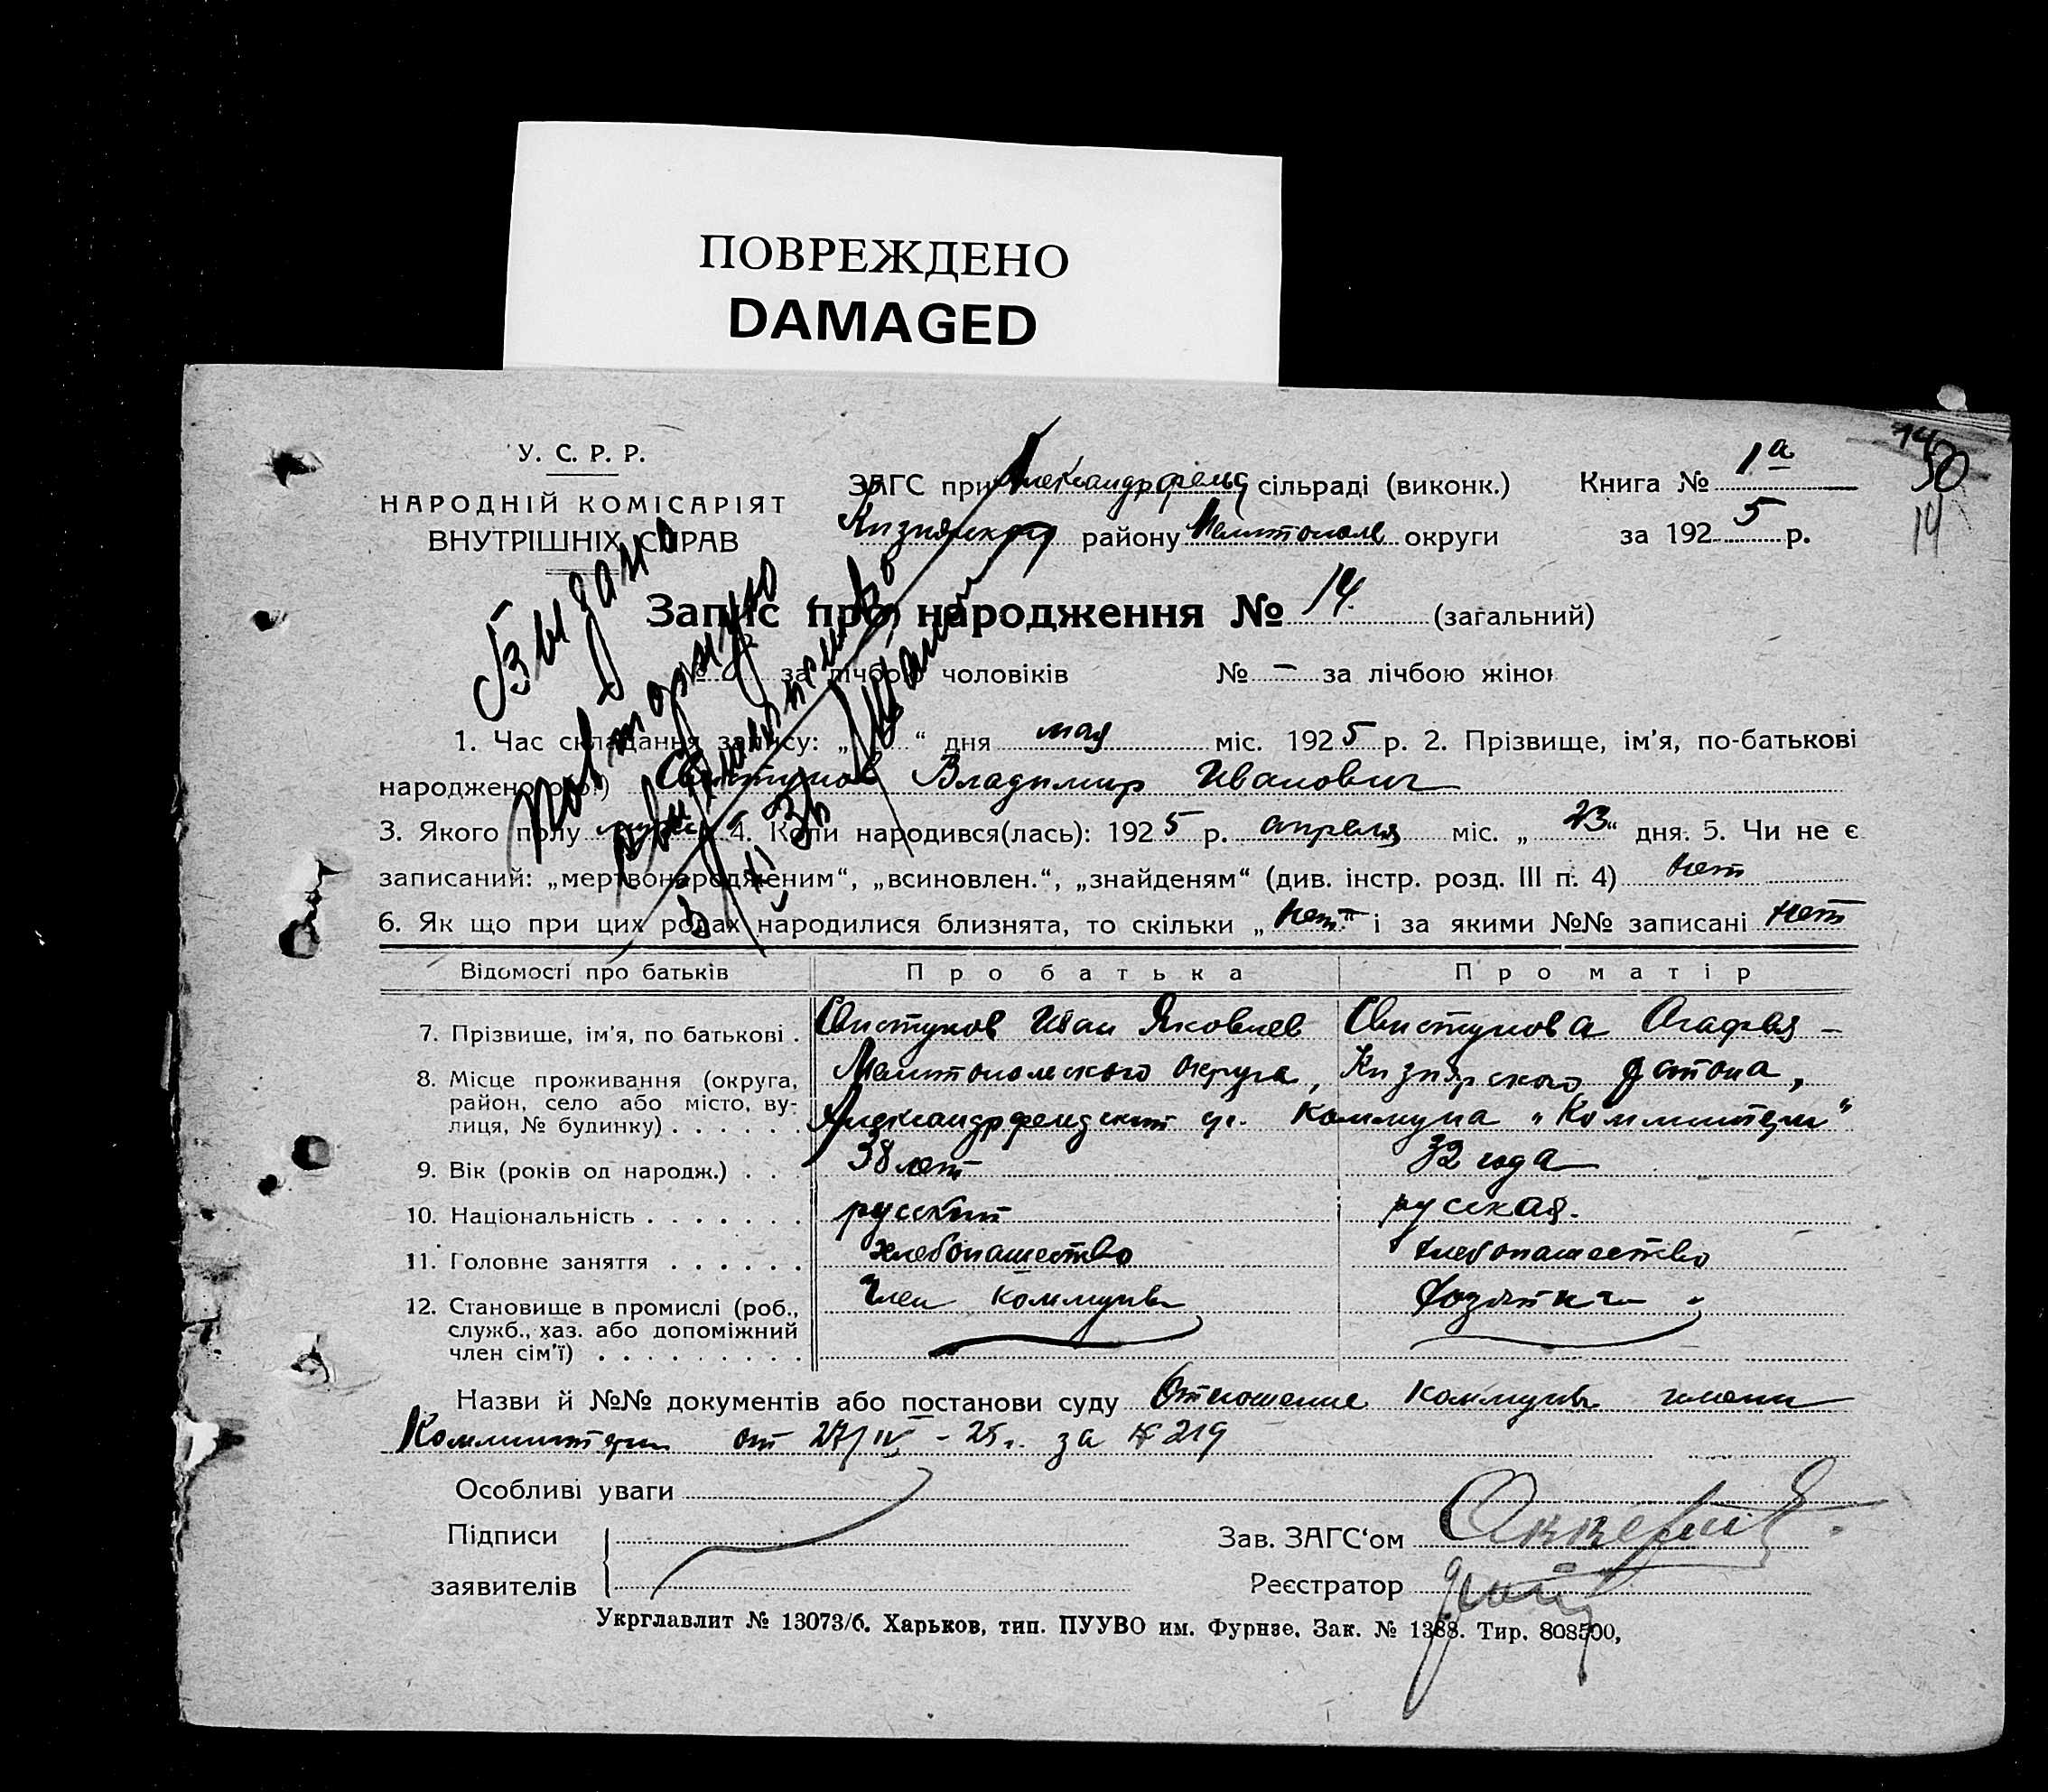 ПОВРЕЖДЕНО
DAMAGED
У. С. Р. Р.
НАРОДНІЙ КОМІСАРІЯТ
ВНУТРІШНІХ СПРАВ
ЗАГС при Александрфельд сільраді (виконк.)
району Мелитополь округи
Книга № 1а
за 1925 р.
14
50
14
Запис про народження № 14. (загальний)
№ за лічбою чоловіків № — за лічбою жінок
Выдано
повторное
свидетельство
1. Час складання запису: „ “ дня мая міс. 1925 р. 2. Прізвище, ім'я, по-батькові
народженого(ої) Свистунов Владимир Иванович
3. Якого полу 4. Коли народився(лась): 1925 р. апреля міс. „23“ дня. 5. Чи не є
записаний: „мертвонародженим“, „всиновлен.“, „знайденям“ (див. інстр. розд. III п. 4) нет
6. Як що при цих родах народилися близнята, то скільки „нет“ і за якими №№ записані нет
Відомості про батьків Про батька Про матір
7. Прізвище, ім'я, по батькові . Свистунов Иван Яковлев Свистунова Агафья —
8. Місце проживання (округа, район, село або місто, вулиця, № будинку) . . . . . . Мелитопольского округа, Кизиярского района,
коммуна „Коминтерн“
9. Вік (років од народж.) . . . 38 лет 32 года
10. Національність . . . . . . . русский русская.
11. Головне заняття . . . . . . хлебопашество хлебопашество
12. Становище в промислі (роб., служб., хаз. або допоміжний член сім'ї) . . . . . . . . . Член коммуны
Назви й №№ документів або постанови суду Отношение коммуны имени
Коминтерн от 27/IV - 25г. за № 219
Особливі уваги
Підписи
заявителів
Зав. ЗАГС'ом
Реєстратор
Укрглавлит № 13073/б. Харьков, тип. ПУУВО им. Фрунзе. Зак. № 1388. Тир. 808500,